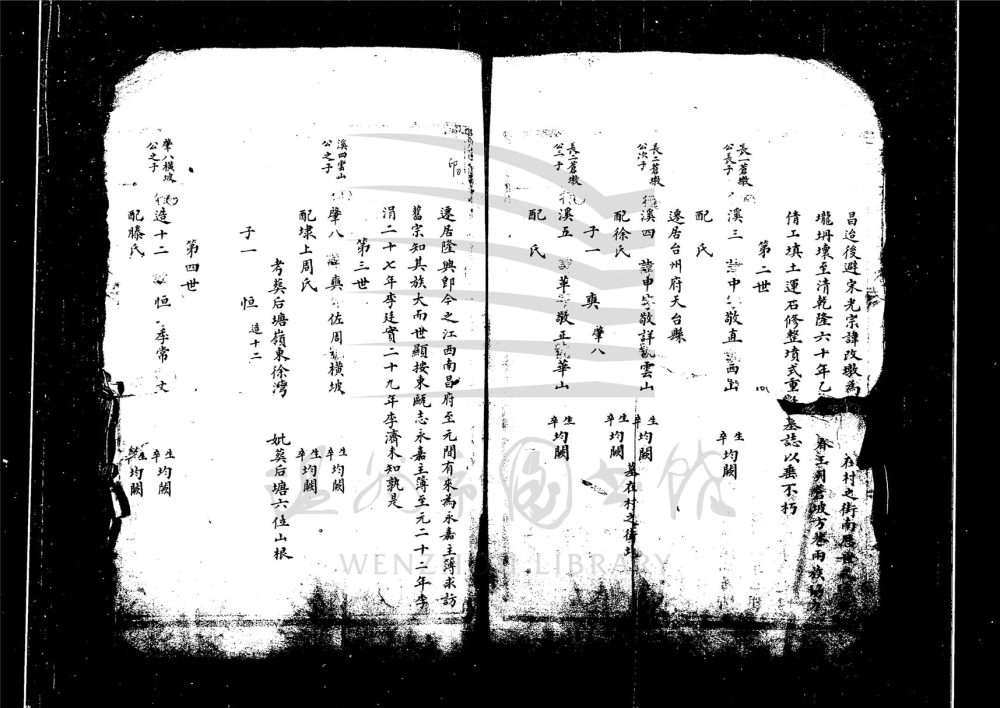 昌迨後避宋光宗諱改墩為 在村之街南
壠坍壞至清乾隆六十年乙 春王月蒼坡方巷兩族
倩工填土運石修整墳式重 墓誌以垂不朽
第二世
長一蒼墩公長子
溪三 諱中 字敬直 西 生卒均闕
配 氏
遷居台州府天台縣
長二蒼墩公次子
行溪四 諱申字敬詳 雲山 生卒均闕
配徐氏 生卒均闕 墓在村之街
子一 奭 肇八
長二蒼墩公三子
溪五 諱革 敬正 華山 生卒均闕
配 氏
遷居隆興郎今之江西南昌府至元間有來為永嘉主簿求訪
舊宗知其族大而世顯按東甌志永嘉主簿至元二十二年李
涓二十七年李廷實二十九年李濟未知孰是
第三世
溪四雲山公之子
肇八 諱奭 佐周 橫坡 生卒均闕
配埭上周氏 生卒均闕
考葬后塘嶺東徐灣 妣葬后塘六位山根
子一 恒 造十二
第四世
肇八橫坡公之子
造十二 恒 季常 文 生卒均闕
配滕氏 生卒均闕
印
WENZHOU LIBRARY